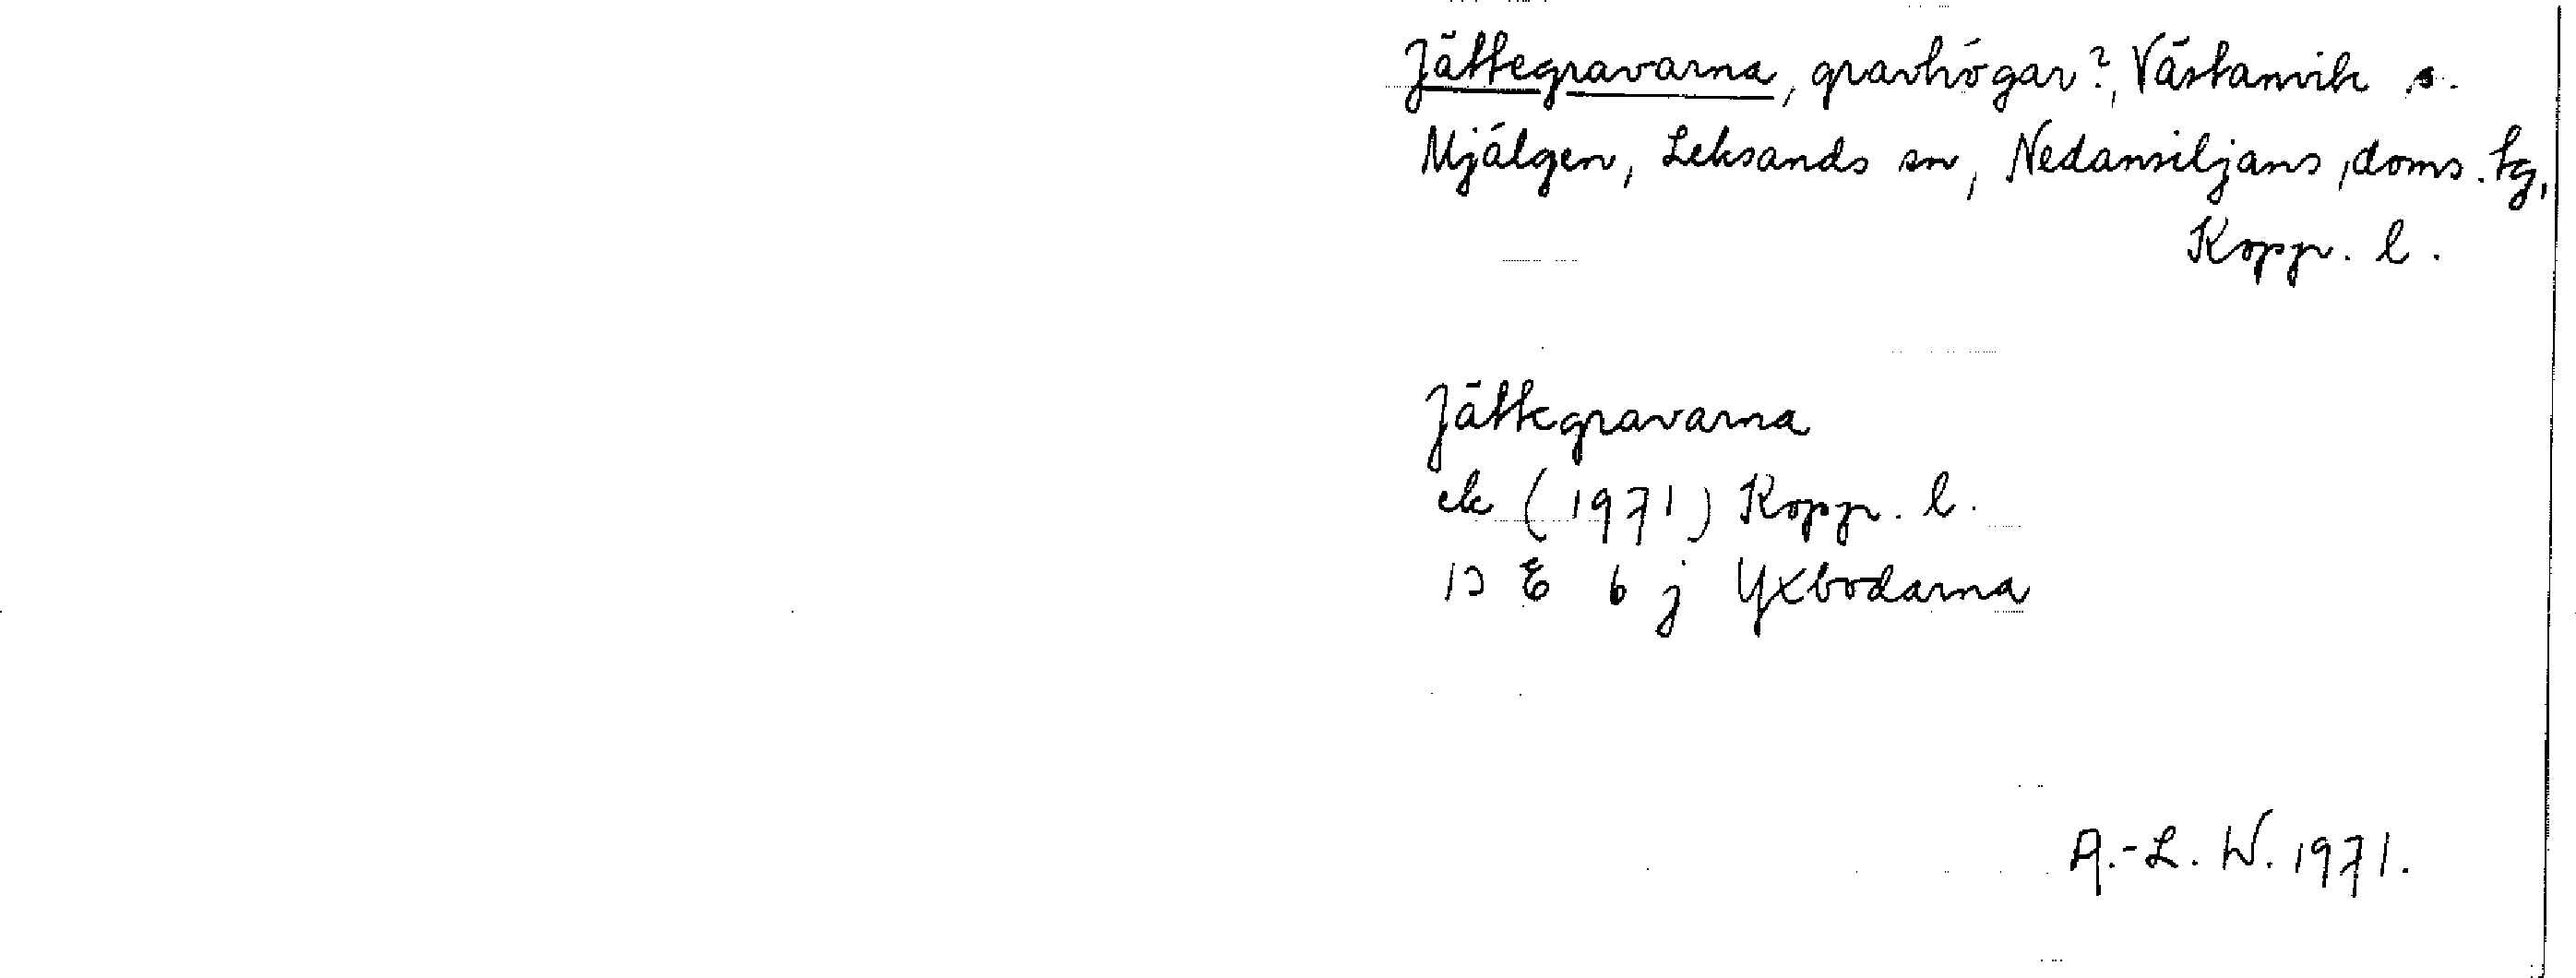 Jättegravarna, gravhögar?, Västanvik s.
Mjälgen, Leksands sn, Nedansiljans, doms. tg,
Koppr. l.
Jättegravarna
ek (1971) Koppr. l.
13 E 6 j Yxbodarna
A.-L. W. 1971.